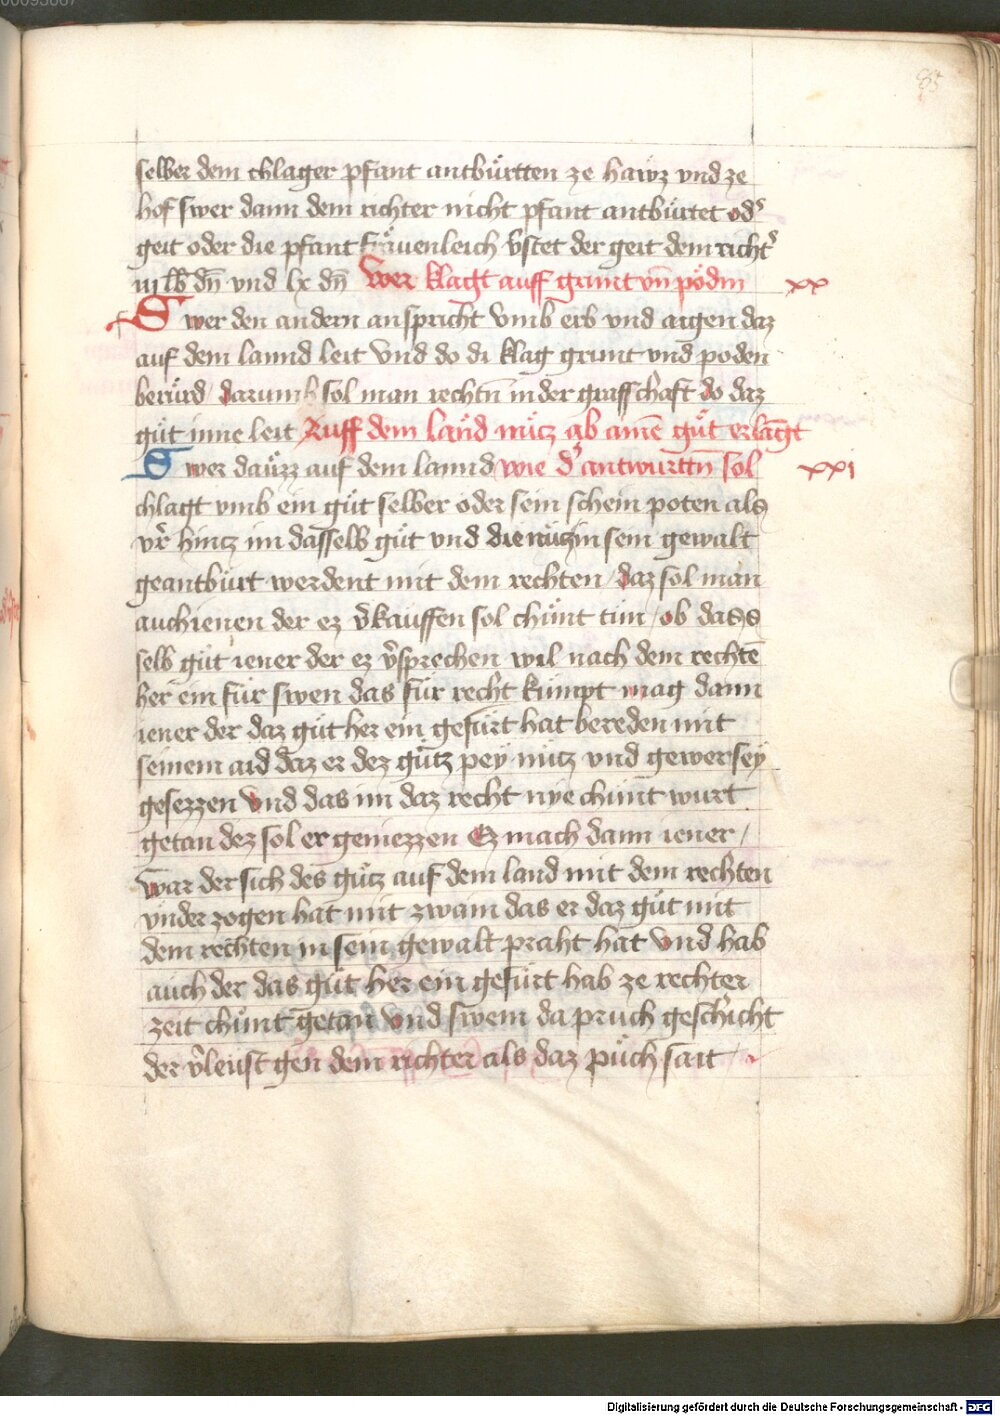 85
selber dem chlager pfant antbuͤrtten ze hawz vnd ze
hof swer dann dem richter nicht pfant antbuͤrtet od͛
geit oder die pfant fraͤuenleich v̓stet der geit dem richt͛
iij lb dn̄ vnd lx dn̄ Wer klagt auff grunt vn̄ podm xx
Swer den andern anspricht vmb erb vnd aigen daz
auf dem lannd leit Vnd do di klag grunt vnd poden
beruͤrd / darumb sol man rechtn̄ in der graffschaft do daz
guͤt inne leit Auff dem land nuͤtz ab aim̄ guͤt erlāgt
Swer dauͤzz auf dem lannd wie d͛ antwurttn̄ sol xxi
chlagt vmb ein guͤt selber oder sein schein poten als
vr̄ hintz im dasselb guͤt vnd die nuͤtz in sein gewalt
geantbuͤrt werdent mit dem rechten / daz sol man
auch ienen der ez v̓kauffen sol chuͤnt tun / ob dass
selb guͤt iener der ez v̓sprechen wil nach dem rechtē
her ein fuͤr swen das fuͤr recht kumpt mag dann
iener der daz guͤt her ein gefuͤrt hat bereden mit
seinem aid daz er dez guͤtz pey nutz vnd gewer sey
gesezzen vnd das im daz recht nye chunt wurt
getan dez sol er geniezzen Ez mach dann iener /
war der sich des guͤtz auf dem land mit dem rechten
vnder zogen hat mit zwain das er daz guͤt mit
dem rechten in sein gewalt praht hat vnd hab
auch der das guͤt her ein gefuͤrt hab ze rechter
zeit chuͤnt getan vnd swem da pruch geschicht
der v̓leust gen dem richter als daz puͤch sait
Digitalisierung gefördert durch die Deutsche Forschungsgemeinschaft - DFG